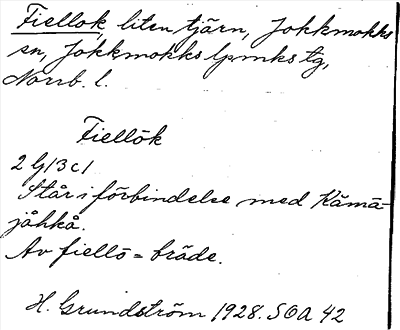 Fiellok, liten tjärn, Jokkmokks
sn, Jokkmokks lpmks tg,
Norrb. l.
Fiellök
2 G/3 c/
Står i förbindelse med Kāmā-
jåhkå.
Av fiellō = bräde.
H. Grundström 1928. SOA 42